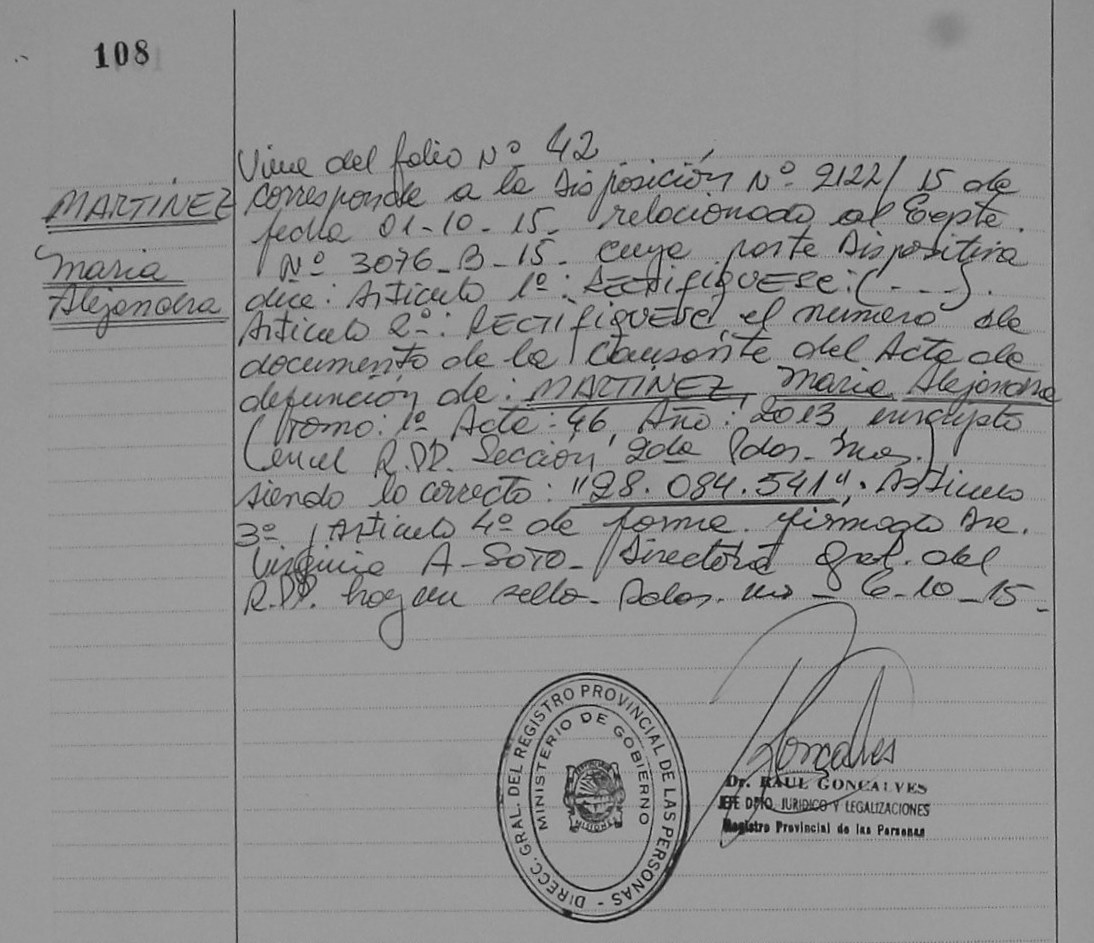 108
MARTÍNEZ
Maria
Alejandra
Viene del folio Nº 42
corresponde a la Disposición Nº 2122/15 de
fecha 01-10-15- relacionado al Expte.
Nº 3076-B-15- cuya parte Dispositiva
dice: Artículo 1º: RECTIFIQUESE: (---).
Articulo 2º: RECTIFIQUESE, el número de
documento de la causante del Acta de
defunción de: MARTÍNEZ, Maria Alejandra
(Tomo: 1º Acta: 46, Año: 2013, inscripto
en el R.P.P. Sección 2da Pdas- Mnes.)
siendo lo correcto: "28.084.541". Articulo
3º, Articulo 4º de forma. firmado Dra.
Virginia A-SOTO- Directora Gral. del
R.P.P. hay un sello- Pdas. Mns - 6-10-15-
DIRECC. GRAL. DEL REGISTRO PROVINCIAL DE LAS PERSONAS -
MINISTERIO DE GOBIERNO
MISIONES
Goncalves
Dr. RAUL GONCALVES
JEFE DPTO. JURIDICO Y LEGALIZACIONES
Registro Provincial de las Personas